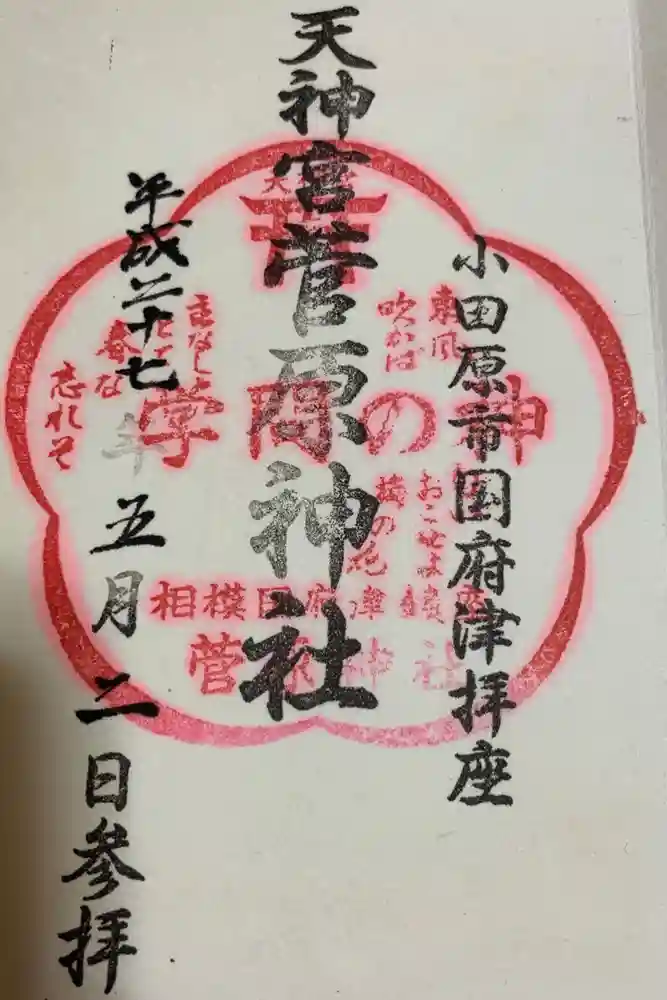 小田原市国府津拝座
天神宮菅原神社
平成二十七年五月二日参拝
東風
吹かば
おこせよ
梅の花
主なしと
春な
忘れそ
学問の神
相模国府津鎮座
菅原神社